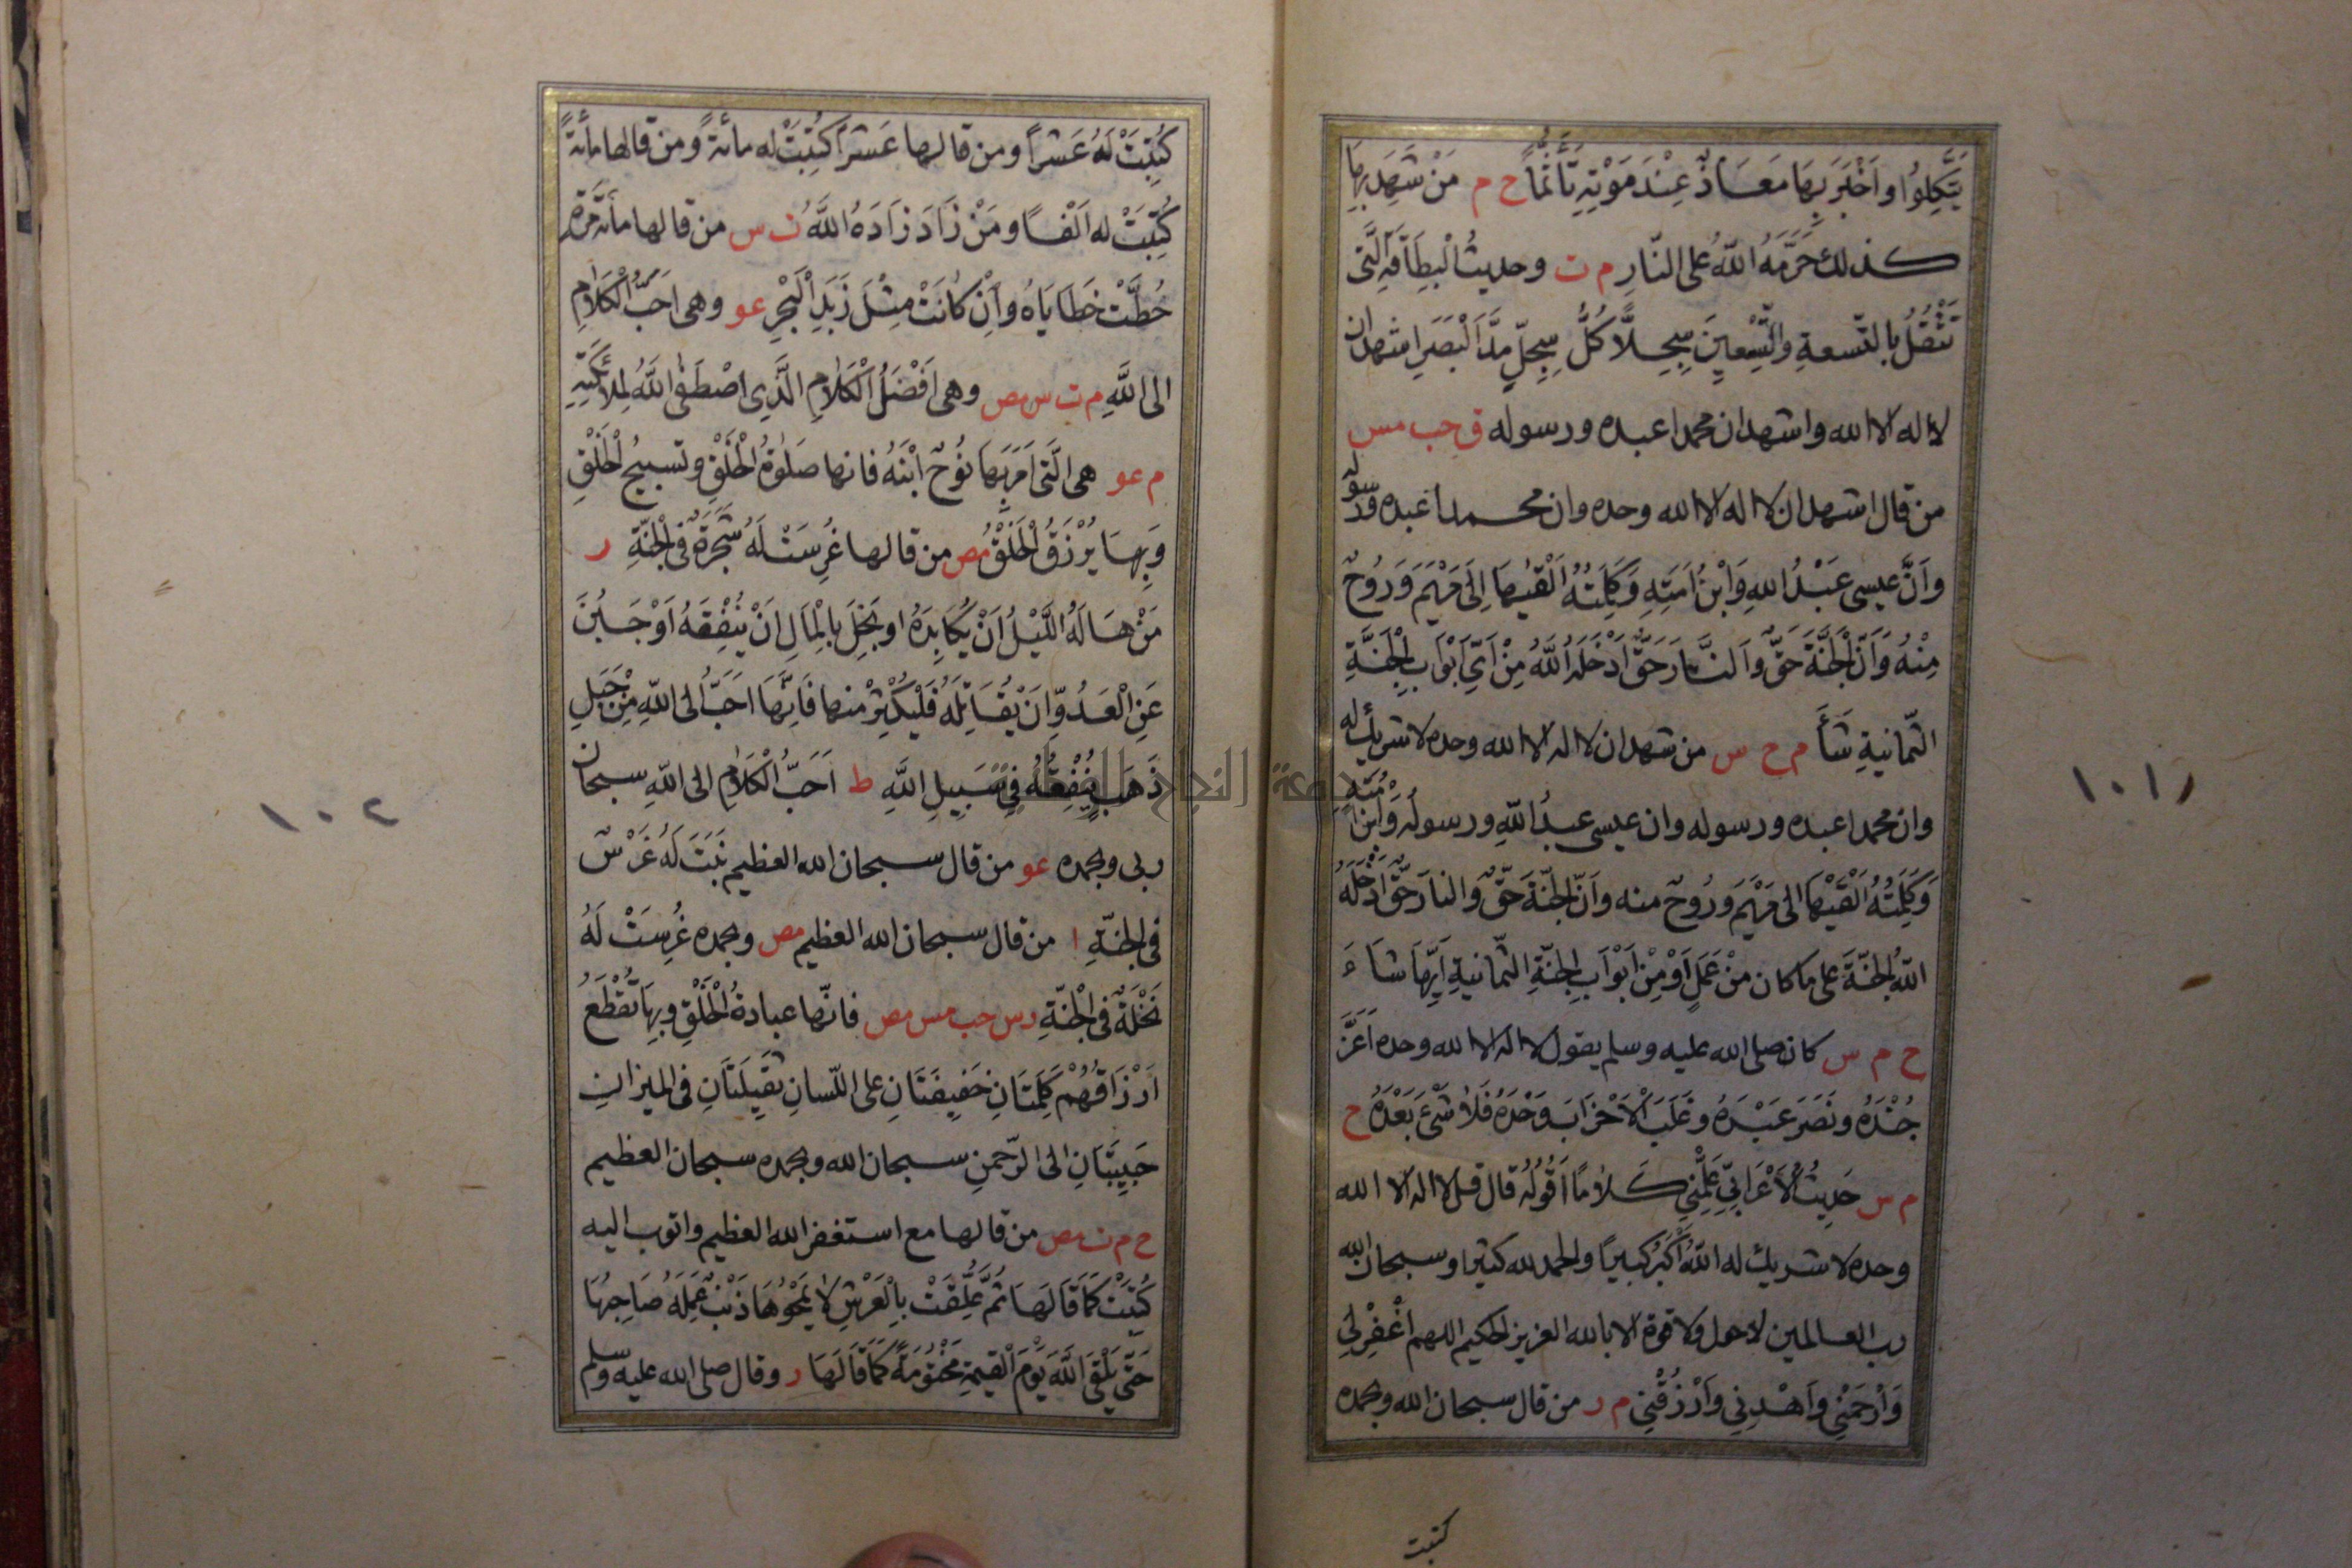 يَتَّكِلُوا وَاَخْبَرَ بِهَا مَعَاذٌ عِنْدَ مَوْتِهِ تَأَثُّمًا ح م مَنْ شَهِدَ بِهَا
كذلك حَرَّمَهُ اللّٰهُ على النّارِ م ت وحديثُ الْبِطَاقَةِ الَّتى
تَثْقُلُ بالتّسعةِ والتِّسْعِينَ سِجِلاًّ كُلُّ سِجِلٍّ مَدَّ الْبَصَرِ اشهد ان
لا اله الا الله واشهد ان محمدا عبده ورسوله ق حب مس
من قال اشهد ان لا اله الا الله وحده وان محمدا عبده ورسوله
واَنَّ عيسى عَبْدُ اللهِ وَابْنُ اَمَتِهِ وَكَلِمَتُهُ اَلْقٰيهَا اِلَى مَرْيَمَ وَرُوحٌ
مِنْهُ وَاَنَّ الْجَنَّةَ حَقٌّ وَالنَّارَ حَقٌّ اَدْخَلَهُ اللّٰهُ مِنْ اَىِّ اَبْوَابِ الْجَنَّةِ
الثّمانيةِ شَآَ م ح س من شهد ان لا اله الا الله وحده لا شريك له
وان محمدا عبده ورسوله وان عيسى عبدُ اللّٰهِ ورسولُه وَابْنُ اَمَتِهِ
وَكَلِمَتُهُ اَلْقٰيهَا الى مَرْيَمَ وَرُوحٌ منه واَنَّ الجَنّةَ حَقٌّ والنارَ حَقٌّ اَدْخَلَهُ
اللّٰهُ الجَنّةَ على ما كان مِنْ عَمَلٍ اَوْ مِنْ اَبْوَابِ الجنّةِ الثّمانيةِ اَيِّهَا شَاءَ
ح م س كان صلى الله عليه وسلم يقول لا اله الا الله وحده اَعَزَّ
جُنْدَهُ ونَصَرَ عَبْدَهُ وغَلَبَ الْاَحْزَابَ وَحْدَهُ فَلَا شَىْءَ بَعْدَهُ ح
م س حَدِيثُ الْاَعْرَابِىِّ عَلِّمْنِى كَلَامًا اَقُولُهُ قال قل لا اله الا الله
وحده لا شريك له اللّٰهُ اَكْبَرُ كَبِيرًا والحمد لله كثيرا وسبحان الله
رب العالمين لا حول ولا قوة الا بالله العزيز الحكيم اللهم اغْفِرْلِى
وَارْحَمْنِى وَاهْدِنِى وَارْزُقْنِى م ر من قال سبحان الله وبحمده
كتبت
١٠١
كُتِبَتْ لَهُ عَشْراً ومن قالها عَشْراً كُتِبَتْ له مائةً ومن قالها مائةً
كُتِبَتْ له اَلْفًا ومَنْ زَادَ زَادَهُ اللّٰهُ ت س من قالها مائة مَرّةٍ
حُطَّتْ خَطَايَاهُ وَاِنْ كَانَتْ مِثْلَ زَبَدِ الْبَحْرِ عو وهى اَحَبُّ الْكَلَامِ
الى اللّٰهِ م ت س مص وهى اَفْضَلُ الْكَلَامِ الَّذِى اصْطَفَى اللّٰهُ لِمَلَائِكَتِهِ
م عو هى الَّتى اَمَرَ بِهَا نُوحٌ ابْنَهُ فانها صَلٰوةُ الْخَلْقِ وتَسبيحُ الْخَلْقِ
وَبِهَا يُرْزَقُ الْخَلْقُ مص من قالها غُرِسَتْ لَهُ شَجَرَةٌ فى الجَنّةِ ر
مَنْ هَالَهُ اللَّيْلُ اَنْ يُكَابِدَهُ او بَخِلَ بِالْمَالِ اَنْ يُنْفِقَهُ اَوْ جَبُنَ
عَنِ الْعَدُوِّ اَنْ يُقَاتِلَهُ فَلْيُكْثِرْ منها فَاِنَّهَا اَحَبُّ الى اللّٰهِ مِنْ جَبَلِ
ذَهَبٍ يُنْفِقُهُ فِى سَبِيلِ اللّٰهِ ط اَحَبُّ الْكَلَامِ الى اللّٰهِ سبحان
ربى وبحمده عو من قال سبحان الله العظيم نَبَتَ لَهُ غَرْسٌ
فى الجنّةِ ا من قال سبحان الله العظيم مص وبحمده غُرِسَتْ لَهُ
نَخْلَةٌ فى الجَنّةِ ر س حب مس مص فانّها عبادةُ الْخَلْقِ وبِهَا تُقْطَعُ
اَرْزَاقُهُمْ كَلِمَتَانِ خَفِيفَتَانِ على اللّسانِ ثَقِيلَتَانِ فى الميزانِ
حَبِيبَتَانِ الى الرّحمنِ سبحان الله وبحمده سبحان العظيم
ح م ت مص من قالها مع استغفر الله العظيم واتوب اليه
كُتِبَتْ كَمَا قَالَهَا ثُمَّ عُلِّقَتْ بِالْعَرْشِ لَا يَمْحُوهَا ذَنْبٌ عَمِلَهُ صَاحِبُهَا
حَتّى يَلْقَى اللّٰهَ يَوْمَ الْقِيمَةِ مَخْتُومَةً كَمَا قَالَهَا ر وقال صلى الله عليه وسلم
١٠٢
جامعة النجاح الوطنية